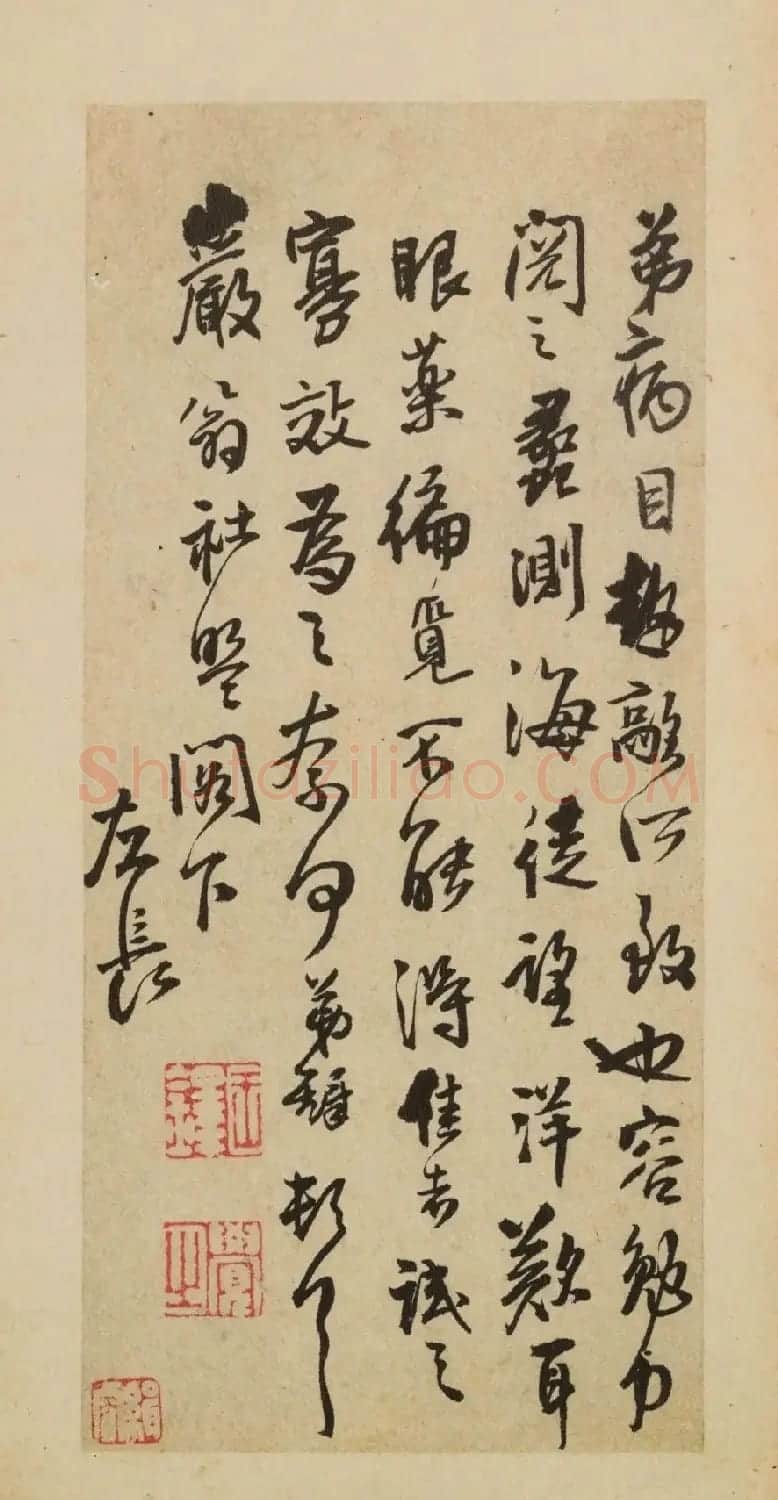 弟病目離所致也容勉力
閱之蠡測海徒望洋歎耳
眼藥徧覓不能得佳者試之
寡效為之奈何弟鐸頓首
巖翁社盟閣下
左長
Shufaziliao.COM